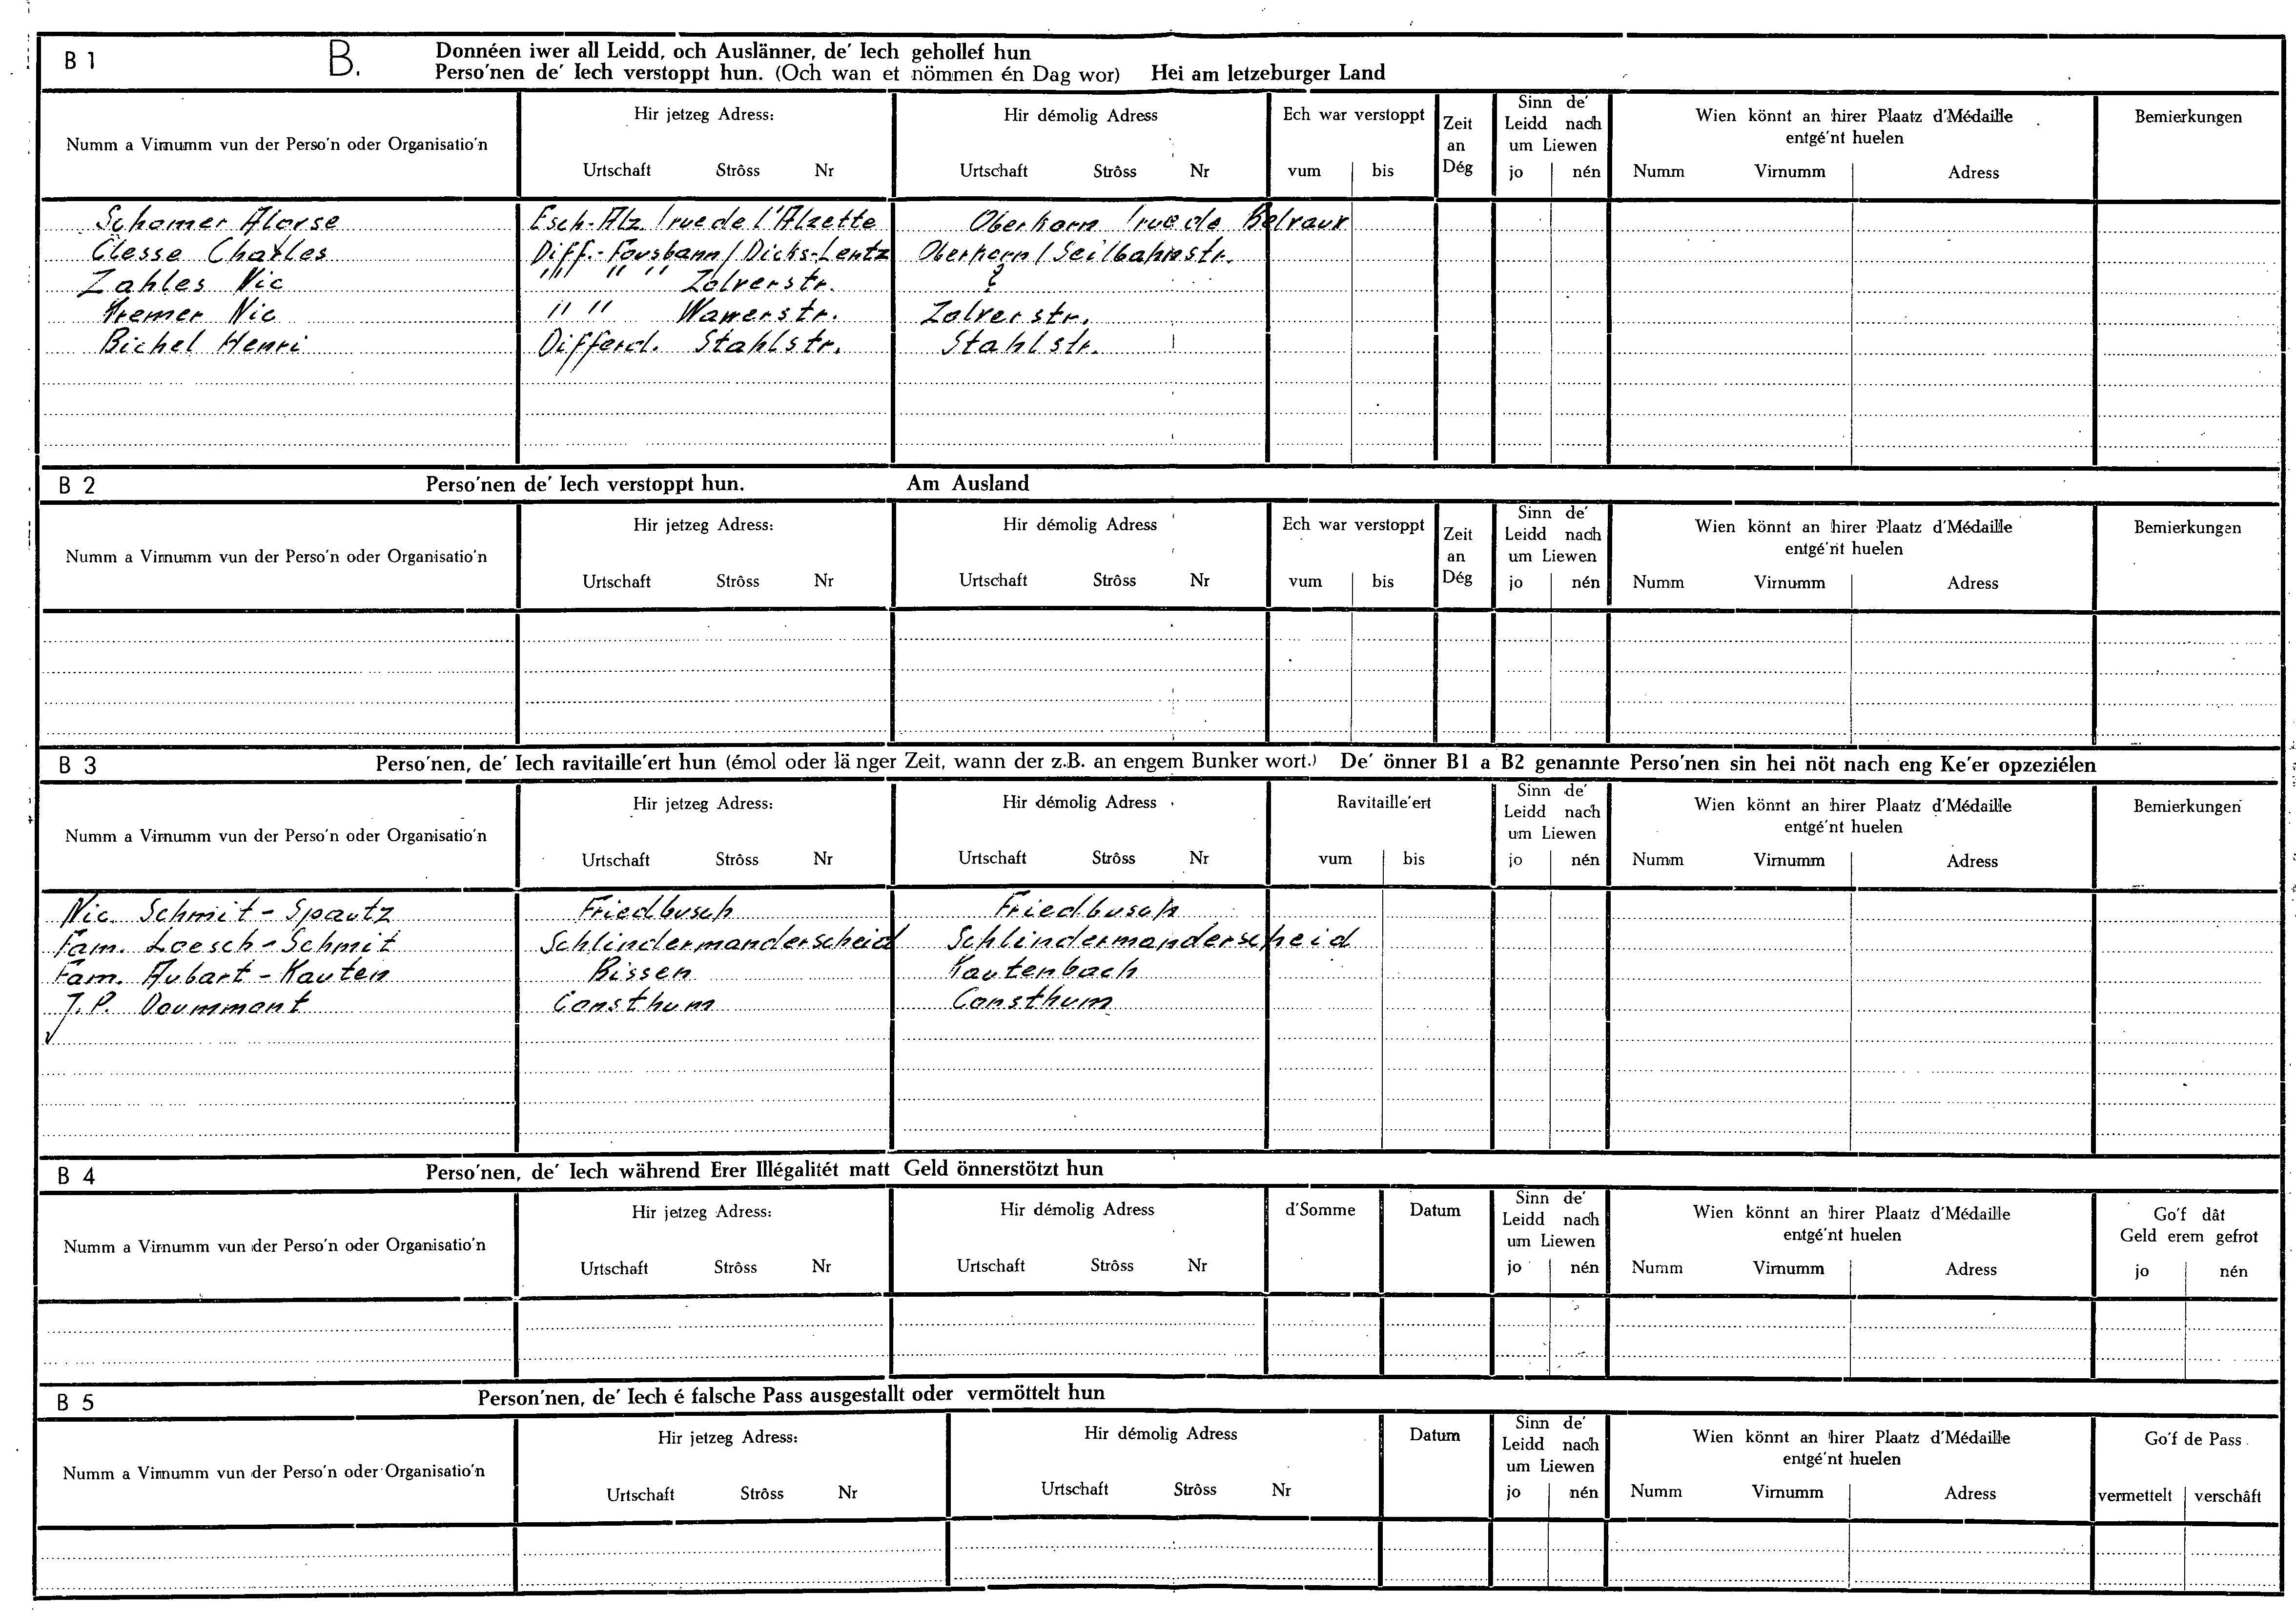 B 1 B. Donnéen iwer all Leidd, och Auslänner, de' Iech gehollef hun
Perso'nen de' Iech verstoppt hun. (Och wan et nömmen én Dag wor) Hei am letzeburger Land
Numm a Virnumm vun der Perso'n oder Organisatio'n
Hir jetzeg Adress:
Urtschaft Strôss Nr
Hir démolig Adress
Urtschaft Strôss Nr
Ech war verstoppt
vum bis
Zeit
an
Dég
Sinn de'
Leidd nach
um Liewen
jo nén
Wien könnt an hirer Plaatz d'Médaille
entgé'nt huelen
Numm Virnumm Adress
Bemierkungen
Schomer Aloyse Esch-Alz. / rue de l'Alzette Oberkorn / rue de Belvaux
Clesse Charles Diff.-Fousbann / Dicks-Lentz Oberkorn / Seilbahnstr.
Zahles Nic " " " Zolverstr. ?
Kremer Nic " " Wamerstr. Zolverstr.
Bichel Henri Differd. Stahlstr. Stahlstr.
B 2 Perso'nen de' Iech verstoppt hun. Am Ausland
Numm a Virnumm vun der Perso'n oder Organisatio'n
Hir jetzeg Adress:
Urtschaft Strôss Nr
Hir démolig Adress
Urtschaft Strôss Nr
Ech war verstoppt
vum bis
Zeit
an
Dég
Sinn de'
Leidd nach
um Liewen
jo nén
Wien könnt an hirer Plaatz d'Médaille
entgé'nt huelen
Numm Virnumm Adress
Bemierkungen
B 3 Perso'nen, de' Iech ravitaille'ert hun (émol oder länger Zeit, wann der z.B. an engem Bunker wort.) De' önner B1 a B2 genannte Perso'nen sin hei nöt nach eng Ke'er opzeziélen
Numm a Virnumm vun der Perso'n oder Organisatio'n
Hir jetzeg Adress:
Urtschaft Strôss Nr
Hir démolig Adress
Urtschaft Strôss Nr
Ravitaille'ert
vum bis
Sinn de'
Leidd nach
um Liewen
jo nén
Wien könnt an hirer Plaatz d'Médaille
entgé'nt huelen
Numm Virnumm Adress
Bemierkungen
Nic. Schmit-Spautz Friedbusch Friedbusch
Fam. Loesch-Schmit Schlindermanderscheid Schlindermanderscheid
Fam. Aubart-Kauten Bissen Kautenbach
J.P. Doummont Consthum Consthum
B 4 Perso'nen, de' Iech während Erer Illégalitét matt Geld önnerstötzt hun
Numm a Virnumm vun der Perso'n oder Organisatio'n
Hir jetzeg Adress:
Urtschaft Strôss Nr
Hir démolig Adress
Urtschaft Strôss Nr
d'Somme
Datum
Sinn de'
Leidd nach
um Liewen
jo nén
Wien könnt an hirer Plaatz d'Médaille
entgé'nt huelen
Numm Virnumm Adress
Go'f dât
Geld erem gefrot
jo nén
B 5 Person'nen, de' Iech é falsche Pass ausgestallt oder vermöttelt hun
Numm a Virnumm vun der Perso'n oder Organisatio'n
Hir jetzeg Adress:
Urtschaft Strôss Nr
Hir démolig Adress
Urtschaft Strôss Nr
Datum
Sinn de'
Leidd nach
um Liewen
jo nén
Wien könnt an hirer Plaatz d'Médaille
entgé'nt huelen
Numm Virnumm Adress
Go'f de Pass
vermettelt verschâft